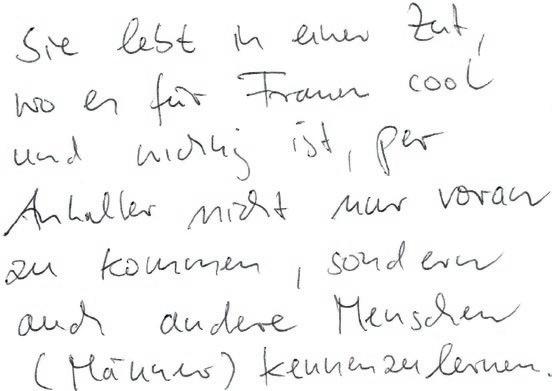 Sie lebt in einer Zeit,
wo es für Frauen cool
und wichtig ist, per
Anhalter nicht nur voran
zu kommen, sondern
auch andere Menschen
(Männer) kennenzulernen.